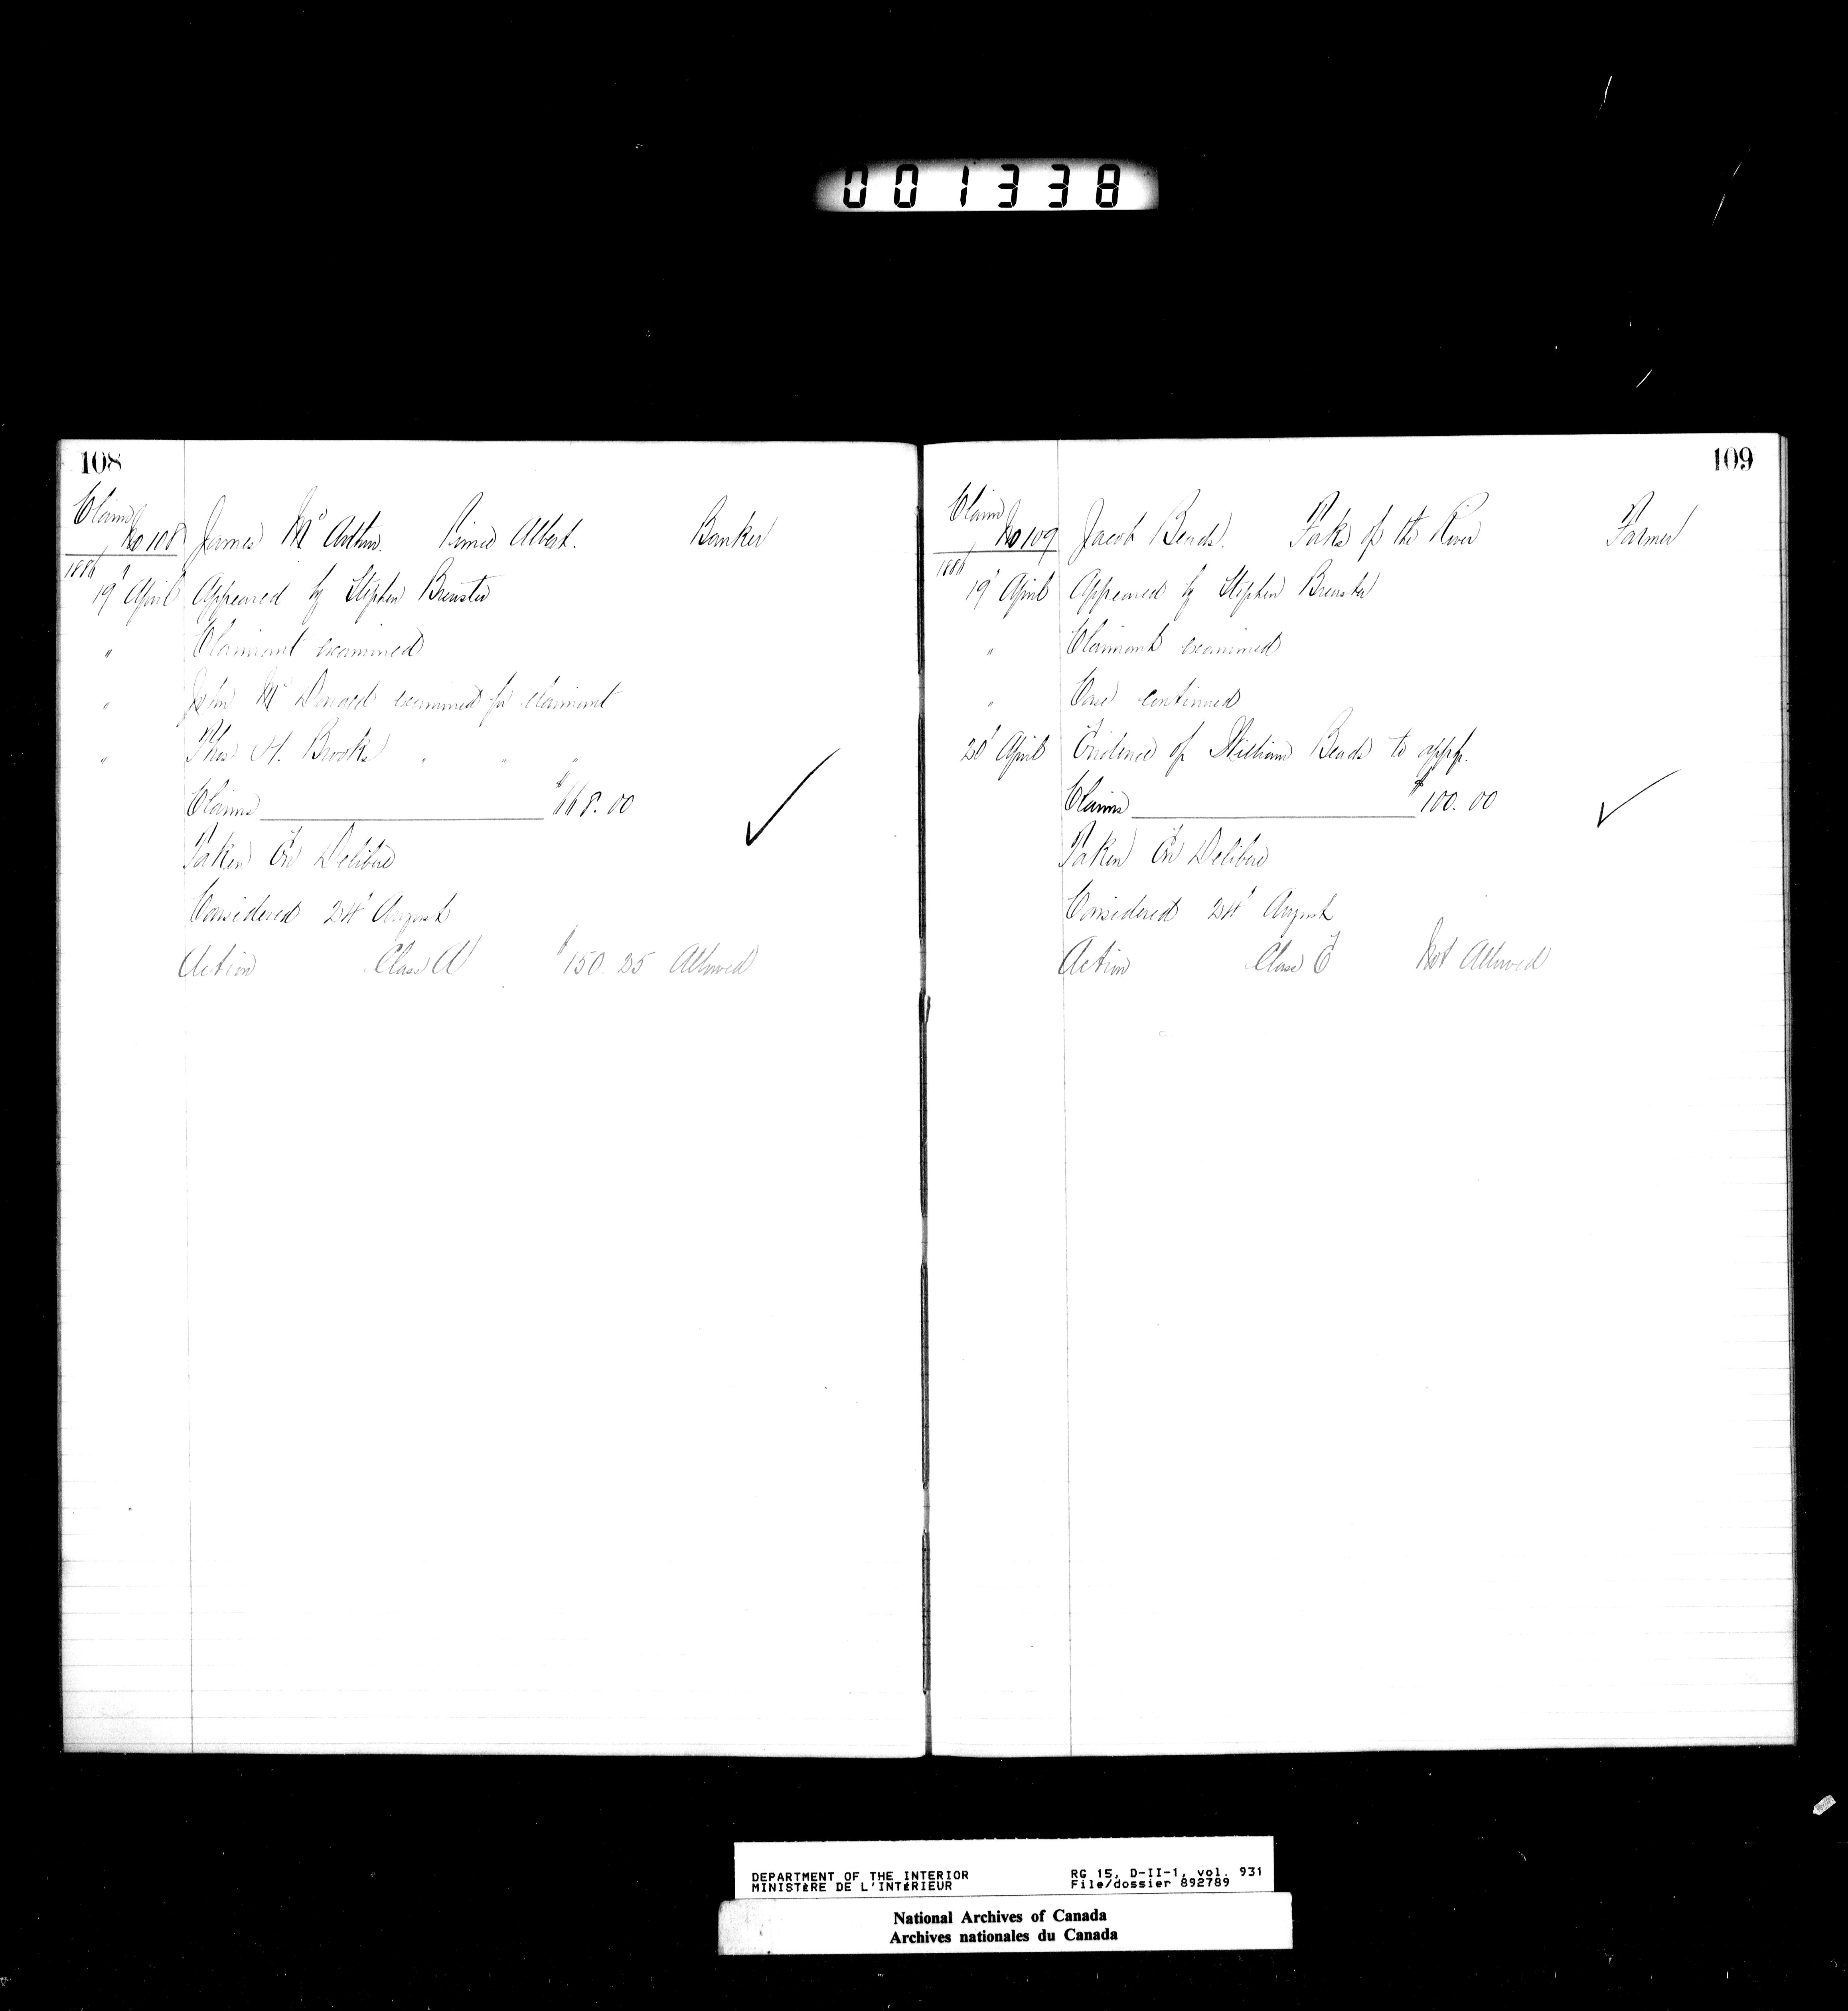 001338
108
Claim
No 108 James McArthur. Prince Albert. Banker
1886
19' April Appeared by Stephen Brewster
" Claimant examined
" John McDonald examined for claimant
" Thos H. Brooks " " "
Claims $668.00
Taken En Delibere
Considered 24' August
Action Class A $150.25 Allowed
109
Claim
No 109 Jacob Beads. Forks of the River Farmer
1886
19' April Appeared by Stephen Brewster
" Claimant examined
" Case continued
20' April Evidence of William Beads to apply.
Claims $100.00
Taken En Delibere
Considered 24' August
Action Class E Not Allowed
DEPARTMENT OF THE INTERIOR RG 15, D-II-1, vol. 931
MINISTÈRE DE L'INTÉRIEUR File/dossier 892789
National Archives of Canada
Archives nationales du Canada